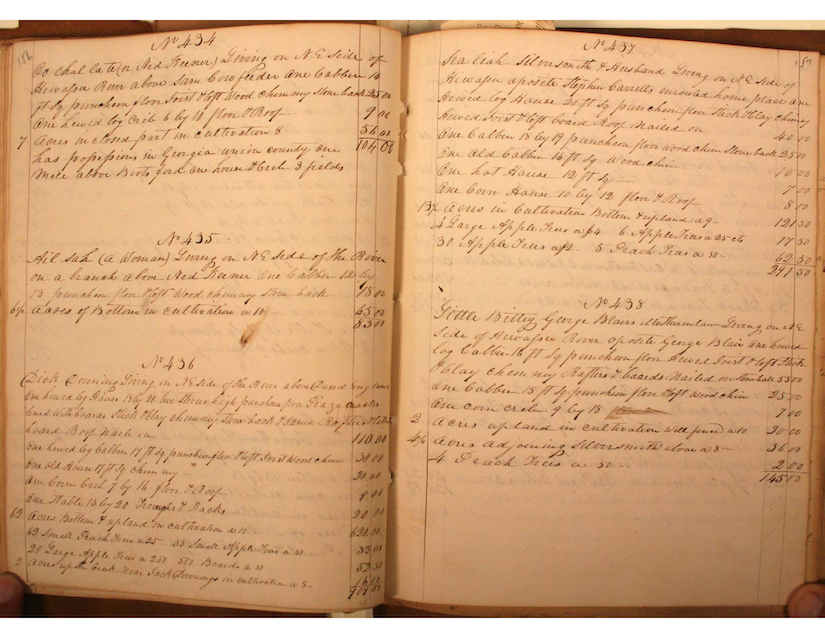 186
No 434
Co chal la te (or Ned Keener) Living on N E Side of
Hewassee River above Sam Cornfeeder One Cabben 14
ft Sq puncheon floor Joist & loft Wood Chimney Stone back 25 00
One hewed log Crib 6 by 10 floor & Roof 9 00
7 Acres in closed part in cultivation 8 56 00
has possessions in Georgia union county one 104 00
Mile above Boots ford one house & Crib 3 fields
No 435
Ail sah (A Woman) Living on N E Side of the River
on a branch above Ned Keener One Cabben 12 by
13 puncheon floor & loft Wood chimney Stone back 18 00
6½ Acres of Bottom in cultivation a 10 65 00
83 00
No 436
Dick Downing Living in N E Side of the River above
one hewed log House 18 by 21 two Stories high puncheon floor Piaza
with boards Stick & clay chimney Stone back &
board Roof Nail on 110.00
One hewed log Cabben 17 ft Sq puncheon floor & loft Joist Wood chim 30 00
one old House 17 ft Sq chimney 20.00
One Corn Crib 7 by 16 floor & Roof
One Stable 13 by 20 Troughs & Racks 20 00
62 Acres Bottom & upland in cultivation a 10 620 00
62 Small Peach Trees a 25 33 Small Apple Trees a 50
20 Large Apple Trees a 250 500 Boards a 50 52 50
2 Acres up the creek Near Jack Downings in cultivation a 8- 16 00
187
No 437
Sea leah Silversmith & Husband Living on N E Side of
Hewassee aposite Stephen Carrells home place one
Hewed log House 20 ft Sq puncheon floor Stick & clay chimney
Hewed Joist & loft board Roof Nailed on 40 00
One Cabben 18 by 19 puncheon floor wood chim Stone back 25 00
One Old Cabben 16 ft Sq Wood chim 10 00
One hot House 12 ft Sq 7 00
One Corn House 10 by 12 floor & Roof 8 00
13½ Acres in Cultivation Bottom & upland a 9- 121 50
4 Large Apple Trees a $4 6 Apple Trees a 25 cts 17 50
30 Apple Trees a $2- 5 Peach Trees a 50- 62 50
291 50
No 438
Gittle Bittey, George Blairs Motherinlaw Living on N E
Side of Hewassee River oposite George Blair One hewed
log Cabben 16 ft Sq puncheon floor hewed Joist & loft Stick
& clay chimney Rafters & boards Nailed on 55 00
One Cabben 15 ft Sq puncheon floor loft Wood chim 25 00
One corn crib 9 by 15 7 00
2 Acres upland in cultivation well fenced a 10 20 00
4½ Acres adjoining Silversmith above a 8- 36 00
4 Peach Trees a 50-- 2 00
145 00